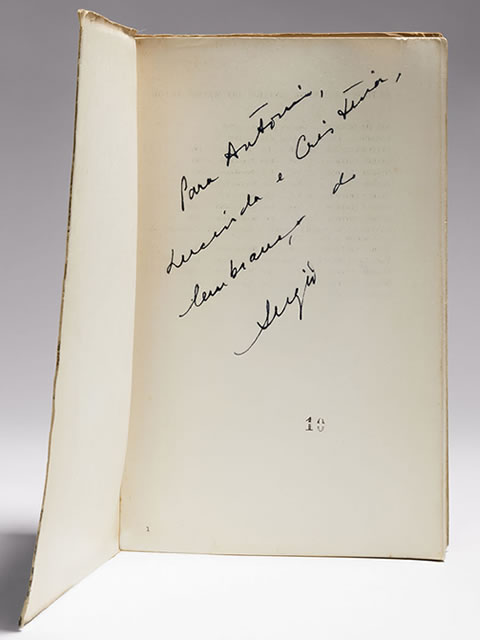 Para Antônio,
Lucinda e Cristina,
lembrança do
Sergio
10
1